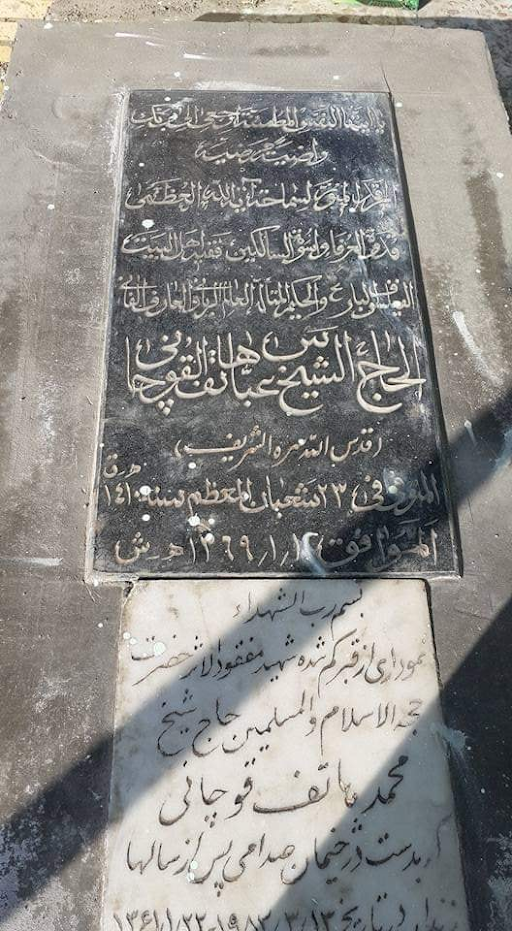 یا ایتها النفس المطمئنة ارجعی الی ربک
راضیة مرضیة
المرقد المنور لسماحة آیة الله العظمی
قدوة العرفا و اسوة السالکین فقیه اهل البیت
الفیلسوف البارع و الحکیم المتأله العالم الربانی و العارف الفانی
الحاج الشیخ عباس هاتف القوچانی
(قدس الله سره الشریف)
المتوفی فی ٢٣ شعبان المعظم سنة ١٤١٠ ه‍ ق
الموافق ١٣٦٩/١/١ ه‍ ش
بسم رب الشهداء
نموداری از قبر گم شده شهید مفقود الاثر حضرت
حجة الاسلام والمسلمین حاج شیخ
محمد هاتف قوچانی
که بدست دژخیمان صدامی پس از سالها
زندان در تاریخ ١٩٨٢/٣/١٣-١٣٦١/١/٢٢